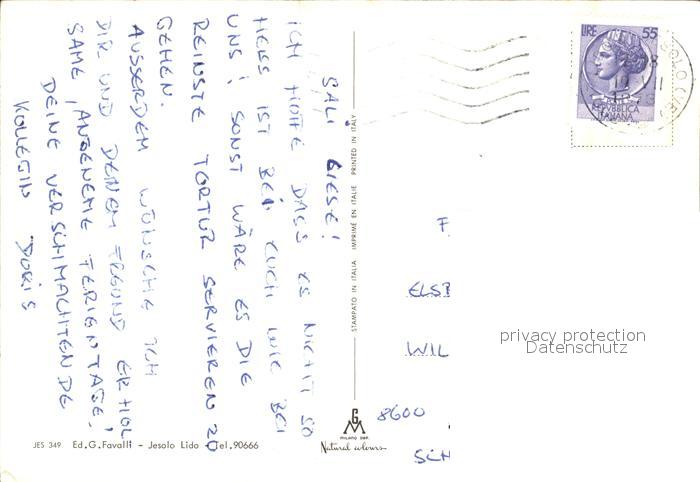 SALI LIESE!
ICH HOFFE DASS ES NICHT SO
HEISS IST BEI EUCH WIE BEI
UNS! SONST WÄRE ES DIE
REINSTE TORTUR SERVIEREN ZU
GEHEN.
AUSSERDEM WÜNSCHE ICH
DIR UND DEINEM FREUND ERHOL
SAME, ANGENEME FERIENTAGE!
DEINE VERSCHMACHTENDE
KOLLEGIN DORIS
JES 349 Ed.G.Favalli - Jesolo Lido - Tel.90666
STAMPATO IN ITALIA IMPRIMÉ EN ITALIE PRINTED IN ITALY
GM
MILANO DEP.
Natural colours
LIRE 55
REPVBBLICA
ITALIANA
F.
ELSB
WIL
8600
SCH
privacy protection
Datenschutz